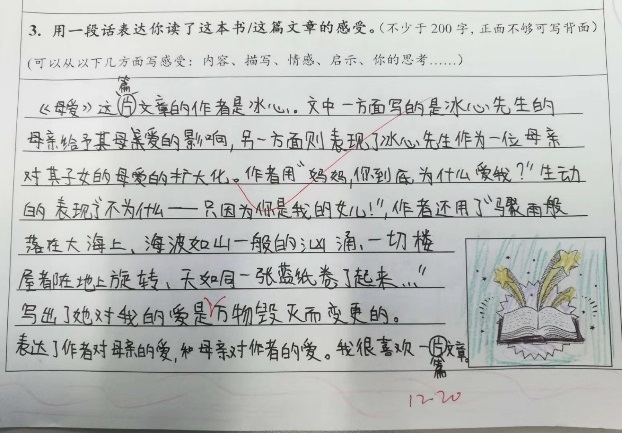 3. 用一段话表达你读了这本书/这篇文章的感受。(不少于 200 字，正面不够可写背面)
(可以从以下几方面写感受：内容、描写、情感、启示、你的思考……)
篇
《母爱》这片文章的作者是冰心。文中一方面写的是冰心先生的
母亲给予其母亲爱的影响,另一方面则表现了冰心先生作为一位母亲
对其子女的母爱的扩大化。作者用“妈妈,你到底为什么爱我？”生动
的表现了“不为什么——只因为你是我的女儿!”,作者还用了“骤雨般
落在大海上、海波如山一般的汹涌、一切楼
屋都在地上旋转、天如同一张蓝纸卷了起来…”
写出了她对我的爱是万物毁灭而变更的。
表达了作者对母亲的爱,和母亲对作者的爱。我很喜欢一片文章。
篇
12-20